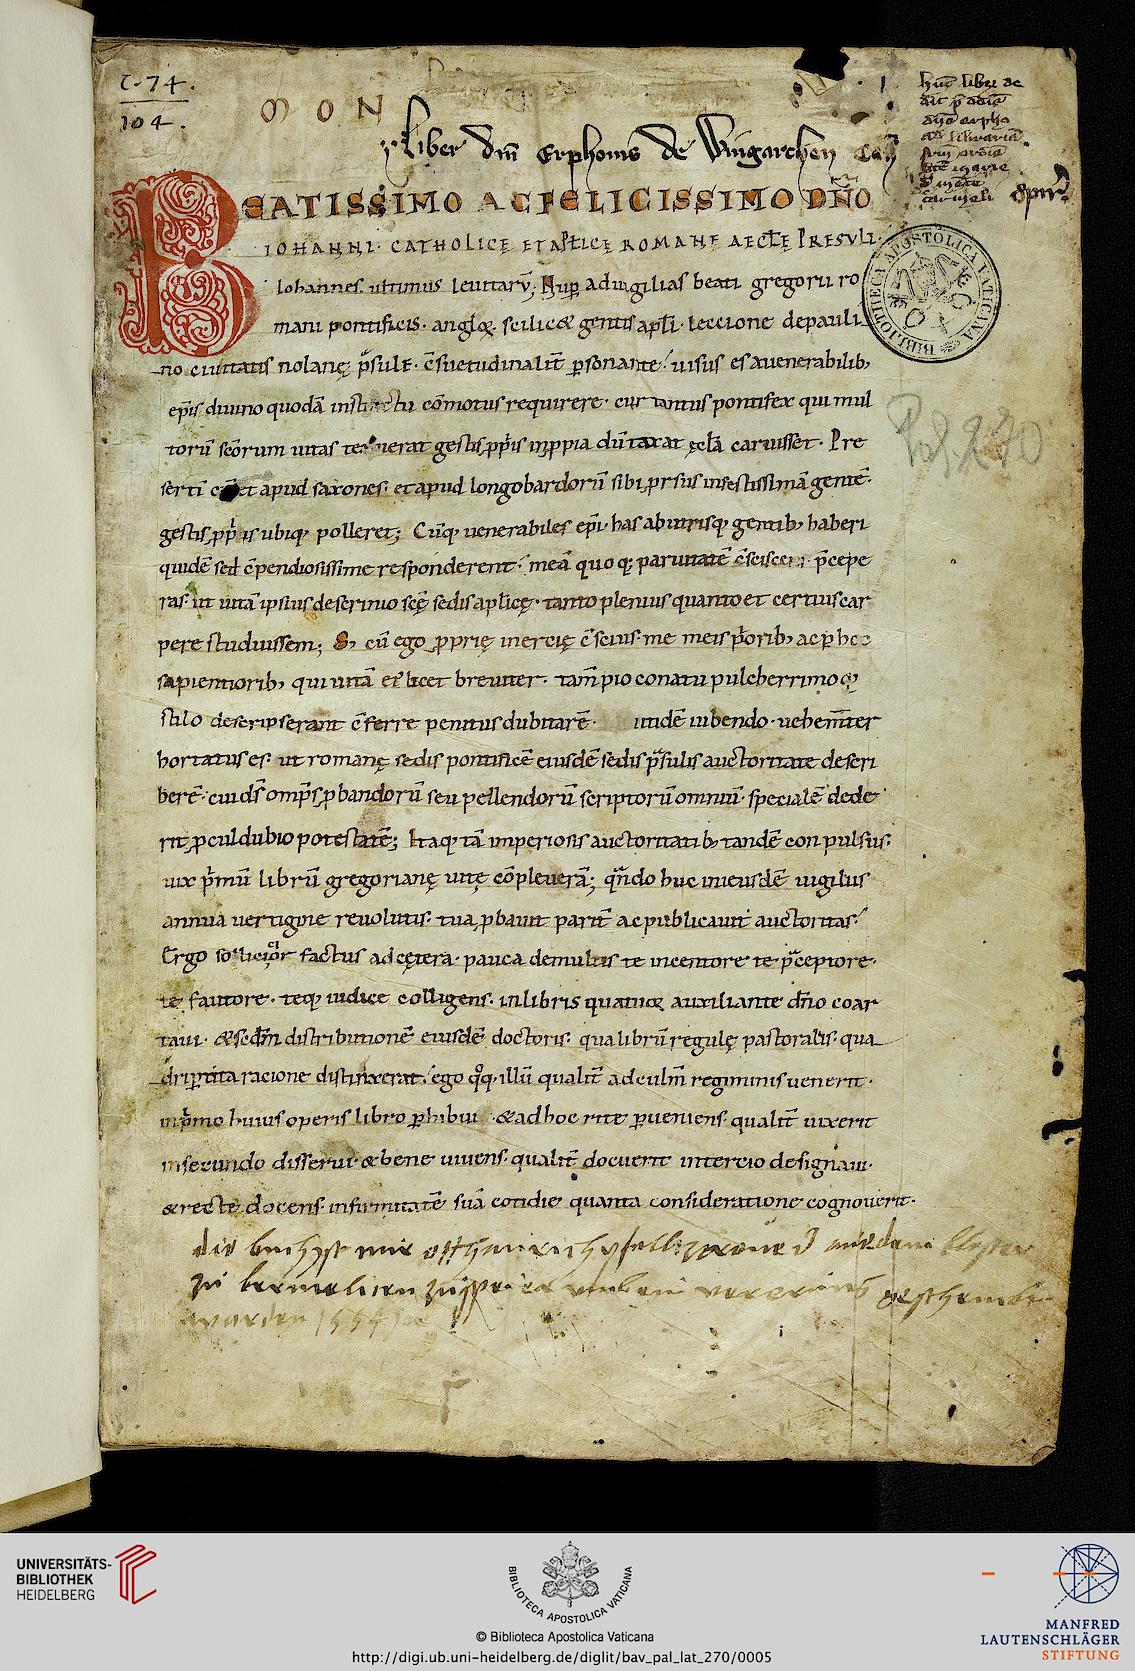 C. 74.
104.
M O N
Liber dni Erphonis de Wingarthen
hunc libru de
BEATISSIMO AC FELICISSIMO DÑO
IOHANNI · CATHOLICĘ ET APLICĘ ROMANE AECLĘ PRESVLI ·
Iohannes ultimus leuitarū; Nup ad uigilias beati gregorii ro
mani pontificis · anglorꝝ scilicet gentis apli · leccione depauli
BIBLIOTHECA APOSTOLICA VATICANA
no ciuitatis nolanę p̄sule · c̄suetudinalit̄ p̱sonante · uisus es auenerabilib;
ep̄is diuino quodā instinctu cōmotus requirere · cur tantus pontifex qui mul
torū sc̄orum uitas texuerat gestis p̱p̄is in p̱pia dūtaxat ęcl̄a caruisset · Pre
Pal. 270
sertī cū et apud saxones · et apud longobardorū sibi p̱rsus infestissimā gentē ·
gestis p̱p̄iis ubiq; polleret; Cūq; uenerabiles ep̄i · has abutrisq; gentib; haberi
quidē sed c̄pendiosissime responderent · meā quoq; paruitatē c̄sciscens · p̄cepe
ras · ut uitā ipsius descrinio sc̄ę sedis aplicę · tanto plenius quanto et certius car
pere studuissem; S; cū ego p̱prię inercię c̄scius · me meis p̄orib; ac p̱ hoc
sapientiorib; qui uitā ei' licet breuiter · tam̄ pio conatu pulcherrimoq;
stilo descripserant c̄ferre penitus dubitarē · itidē iubendo · uehem̄ter
hortatus es · ut romanę sedis pontificē eiusdē sedis p̄sulis auctoritate descri
berē · cui ds̄ omp̄s p̱bandorū seu pellendorū scriptorū omnium · specialē dede
rit p̱culdubio potestatē; Itaq; tā imperiosis auctoritatib; tandē conpulsus ·
uix p̄mū librū gregorianę uitę cōpleuerā; qn̄do huc ineiusdē uigiliis
annua uertigine reuolutis · tua p̱bauit parit̄ ac publicauit auctoritas ·
Ergo sollicitior factus ad cętera · pauca demultis te incentore te p̄ceptore ·
te fautore · teq; iudice colligens · inlibris quatuor auxiliante dn̄o coar
taui · & sec̄dm distributionē eiusdē doctoris · qua librū regulę pastoralis · qua
dripertita racione distinxerat · ego qq; illū qualit̄ ad culm̄ regiminis uenerit ·
inp̄mo huius operis libro p̱hibui · & ad hoc rite p̱ueniens · qualit̄ uixerit
insecundo disserui · & bene uiuens · qualit̄ docuerit intercio designaui ·
& recte docens · infirmitatē suā cotidie quanta consideratione cognouerit ·
zu
worden 1554
UNIVERSITÄTS-
BIBLIOTHEK
HEIDELBERG
BIBLIOTECA APOSTOLICA VATICANA
© Biblioteca Apostolica Vaticana
http://digi.ub.uni-heidelberg.de/diglit/bav_pal_lat_270/0005
MANFRED
LAUTENSCHLÄGER
STIFTUNG